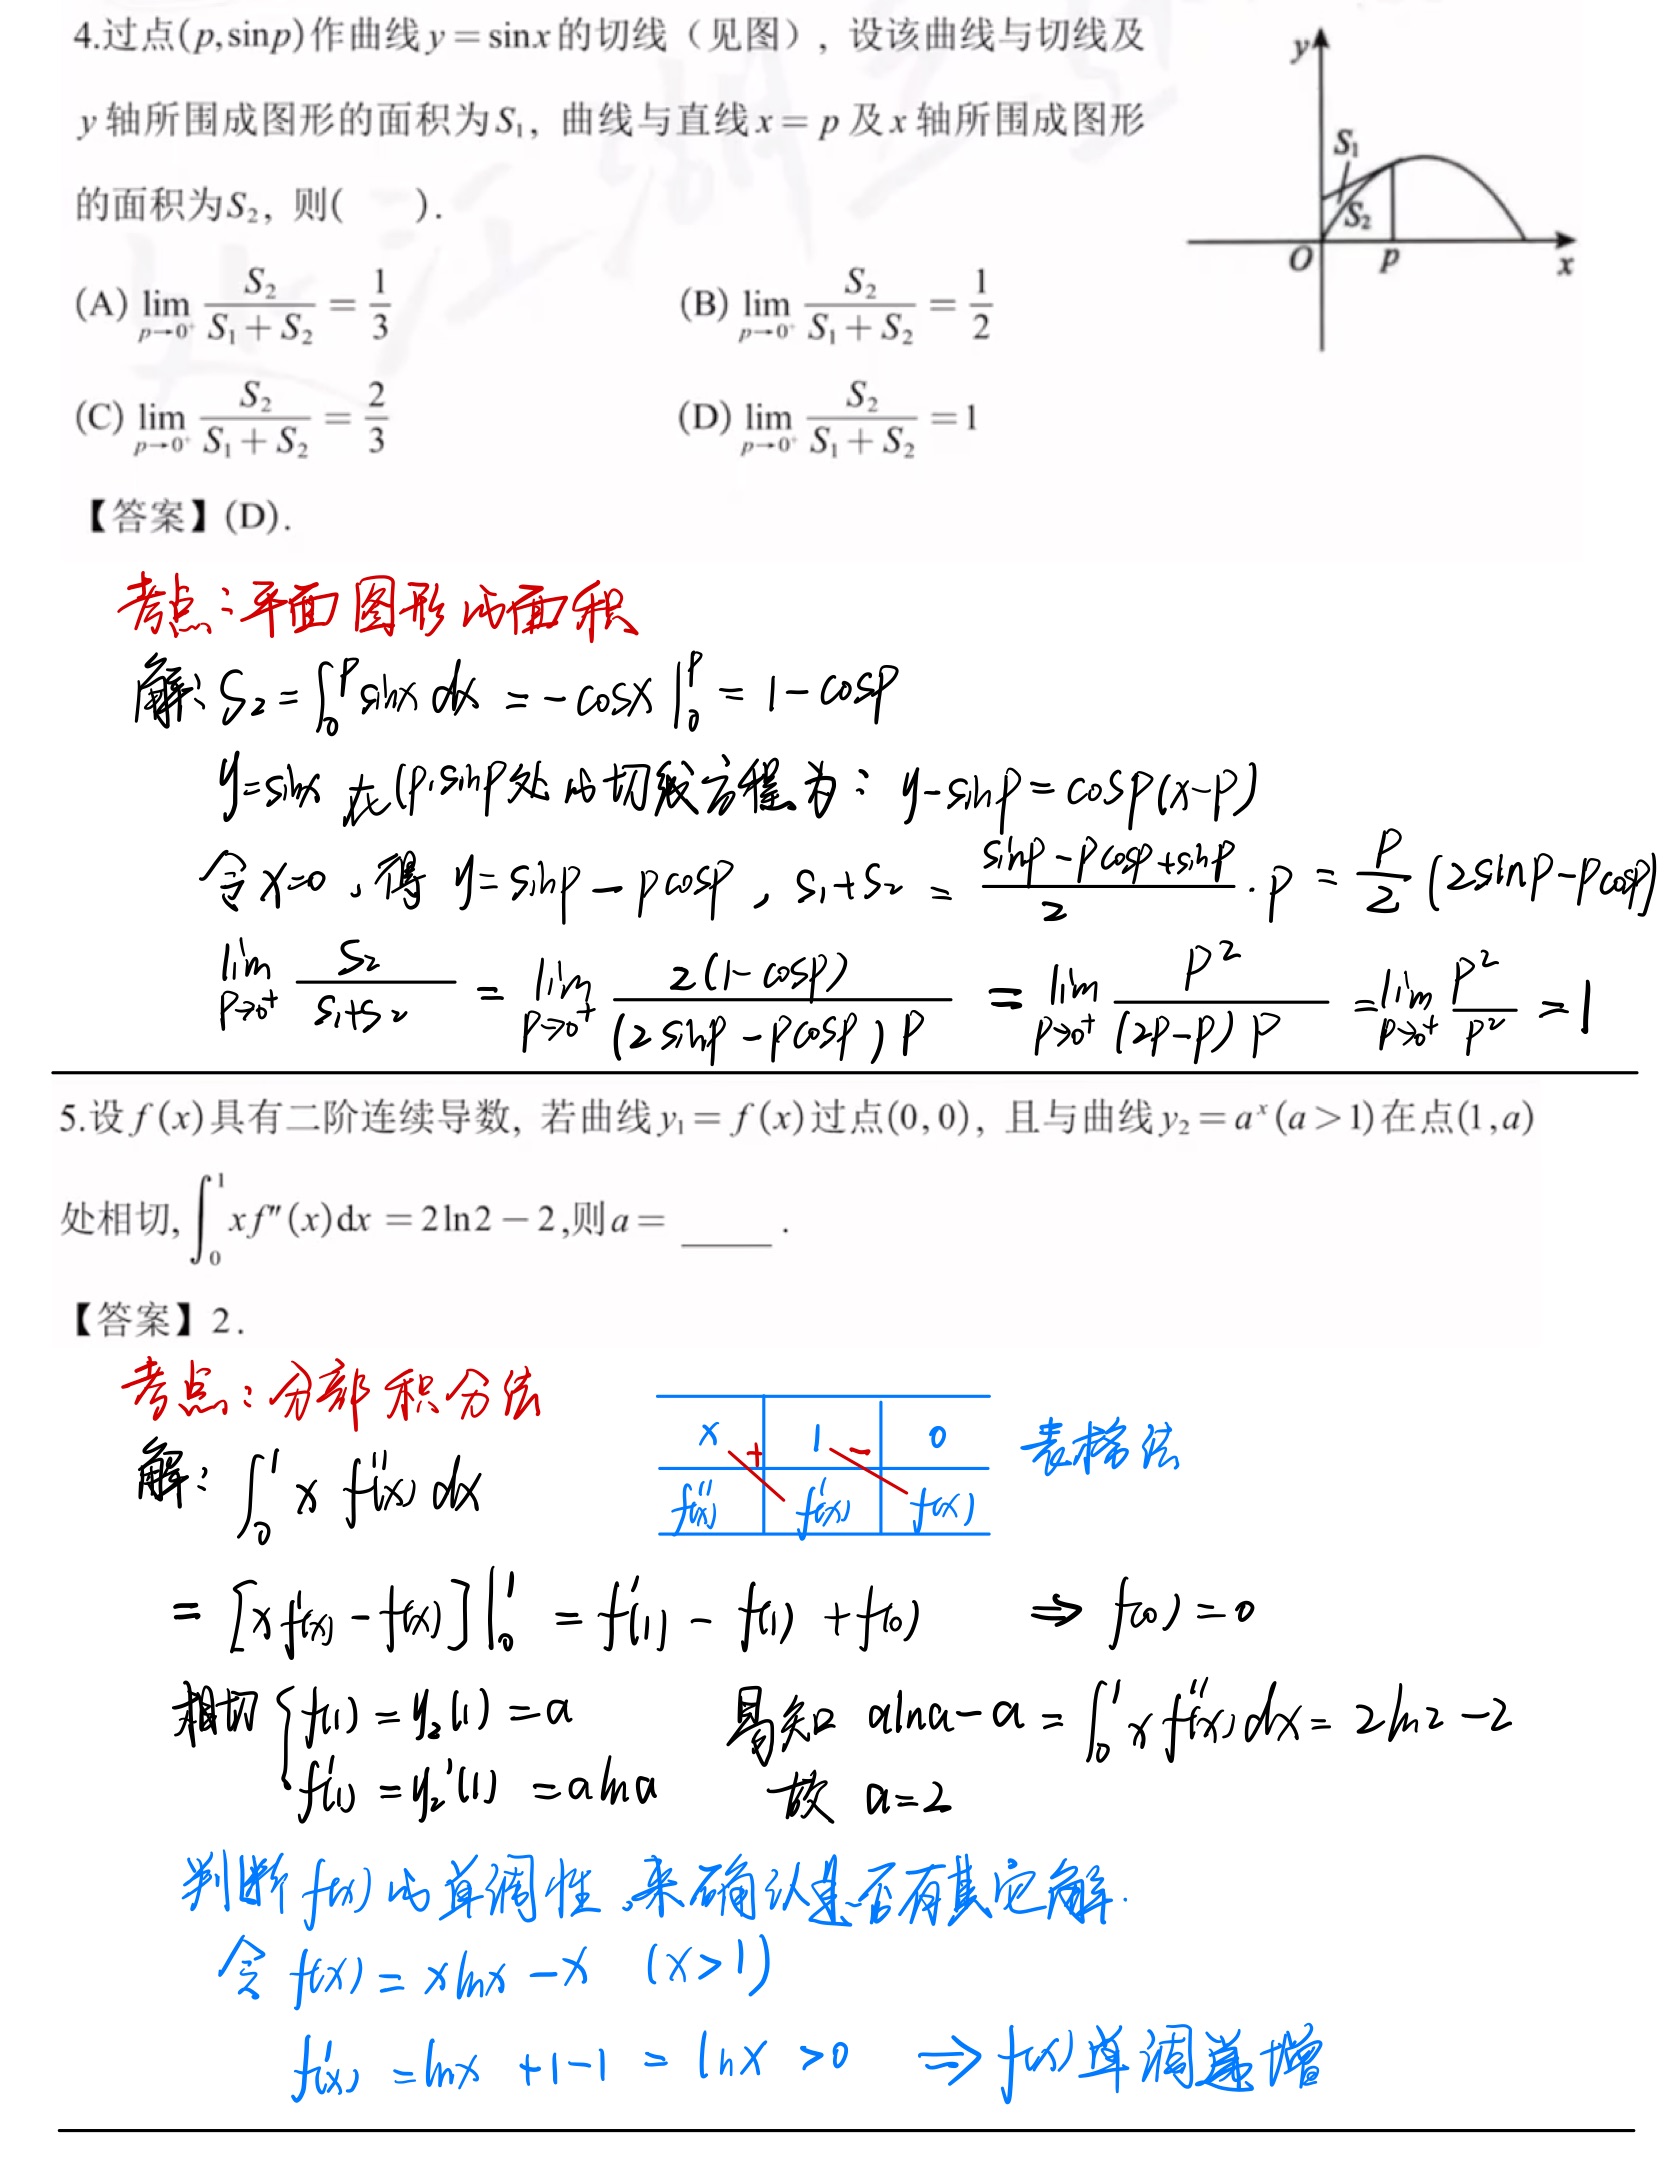 4.过点(p,sinp)作曲线y=sinx的切线（见图），设该曲线与切线及
y轴所围成图形的面积为S₁，曲线与直线x=p及x轴所围成图形
的面积为S₂，则(    ).
y
S₁
S₂
O
p
x
(A) lim_{p→0⁺} S₂/(S₁+S₂) = 1/3
(B) lim_{p→0⁺} S₂/(S₁+S₂) = 1/2
(C) lim_{p→0⁺} S₂/(S₁+S₂) = 2/3
(D) lim_{p→0⁺} S₂/(S₁+S₂) = 1
【答案】(D).
考点：平面图形的面积
解：S₂ = ∫₀^p sinx dx = -cosx |₀^p = 1-cosp
y=sinx 在(p,sinp处的切线方程为：y-sinp = cosp(x-p)
令x=0，得 y=sinp-pcosp，S₁+S₂ = (sinp-pcosp+sinp)/2 · p = p/2 (2sinp-pcosp)
lim_{p→0⁺} S₂/(S₁+S₂) = lim_{p→0⁺} 2(1-cosp)/((2sinp-pcosp)p) = lim_{p→0⁺} p²/((2p-p)p) = lim_{p→0⁺} p²/p² = 1
5.设f(x)具有二阶连续导数，若曲线y₁=f(x)过点(0,0)，且与曲线y₂=aˣ(a>1)在点(1,a)
处相切,∫₀¹ xf″(x)dx=2ln2-2,则a=_____.
【答案】2.
考点：分部积分法
x + 1 - 0
f″(x) f′(x) f(x)
表格法
解：∫₀¹ x f″(x) dx
= [xf′(x)-f(x)]|₀¹ = f′(1) - f(1) + f(0) ⇒ f(0)=0
相切 { f(1)=y₂(1)=a
f′(1)=y₂′(1)=alna
易知 alna-a = ∫₀¹ x f″(x) dx = 2ln2-2
故 a=2
判断f(x)的单调性，来确认是否有其它解.
令 f(x) = xlnx-x (x>1)
f′(x) = lnx +1-1 = lnx >0 ⇒ f(x)单调递增